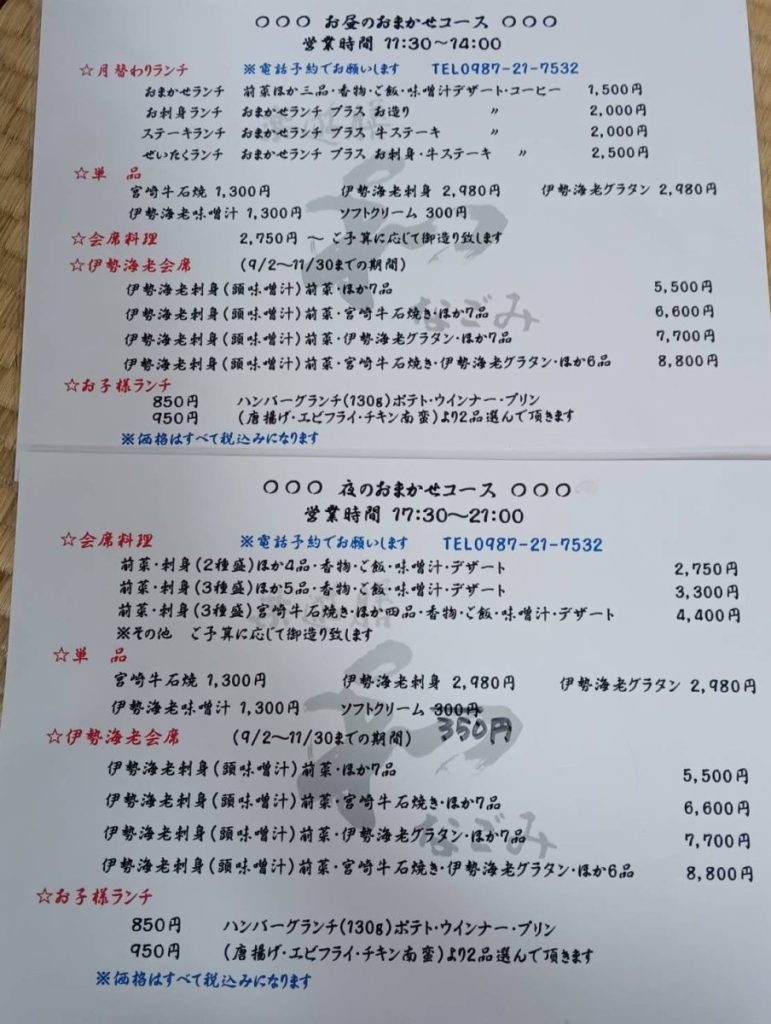 ○○○ お昼のおまかせコース ○○○
営業時間 11:30～14:00
☆月替わりランチ ※電話予約でお願いします TEL0987-21-7532
おまかせランチ 前菜ほか三品・香物・ご飯・味噌汁デザート・コーヒー 1,500円
お刺身ランチ おまかせランチ プラス お造り 〃 2,000円
ステーキランチ おまかせランチ プラス 牛ステーキ 〃 2,000円
ぜいたくランチ おまかせランチ プラス お刺身・牛ステーキ 〃 2,500円
☆単 品
宮崎牛石焼 1,300円 伊勢海老刺身 2,980円 伊勢海老グラタン 2,980円
伊勢海老味噌汁 1,300円 ソフトクリーム 300円
☆会席料理 2,750円 ～ ご予算に応じて御造り致します
☆伊勢海老会席 (9/2～11/30までの期間)
伊勢海老刺身(頭味噌汁)前菜・ほか7品 5,500円
伊勢海老刺身(頭味噌汁)前菜・宮崎牛石焼き・ほか7品 6,600円
伊勢海老刺身(頭味噌汁)前菜・伊勢海老グラタン・ほか7品 7,700円
伊勢海老刺身(頭味噌汁)前菜・宮崎牛石焼き・伊勢海老グラタン・ほか6品 8,800円
☆お子様ランチ
850円 ハンバーグランチ(130g)ポテト・ウインナー・プリン
950円 (唐揚げ・エビフライ・チキン南蛮)より2品選んで頂きます
※価格はすべて税込みになります
和
なごみ
○○○ 夜のおまかせコース ○○○
営業時間 17:30～21:00
☆会席料理 ※電話予約でお願いします TEL0987-21-7532
前菜・刺身(2種盛)ほか4品・香物・ご飯・味噌汁・デザート 2,750円
前菜・刺身(3種盛)ほか5品・香物・ご飯・味噌汁・デザート 3,300円
前菜・刺身(3種盛)宮崎牛石焼き・ほか四品・香物・ご飯・味噌汁・デザート 4,400円
※その他 ご予算に応じて御造り致します
☆単 品
宮崎牛石焼 1,300円 伊勢海老刺身 2,980円 伊勢海老グラタン 2,980円
伊勢海老味噌汁 1,300円 ソフトクリーム 300円
350円
☆伊勢海老会席 (9/2～11/30までの期間)
伊勢海老刺身(頭味噌汁)前菜・ほか7品 5,500円
伊勢海老刺身(頭味噌汁)前菜・宮崎牛石焼き・ほか7品 6,600円
伊勢海老刺身(頭味噌汁)前菜・伊勢海老グラタン・ほか7品 7,700円
伊勢海老刺身(頭味噌汁)前菜・宮崎牛石焼き・伊勢海老グラタン・ほか6品 8,800円
☆お子様ランチ
850円 ハンバーグランチ(130g)ポテト・ウインナー・プリン
950円 (唐揚げ・エビフライ・チキン南蛮)より2品選んで頂きます
※価格はすべて税込みになります
和
なごみ